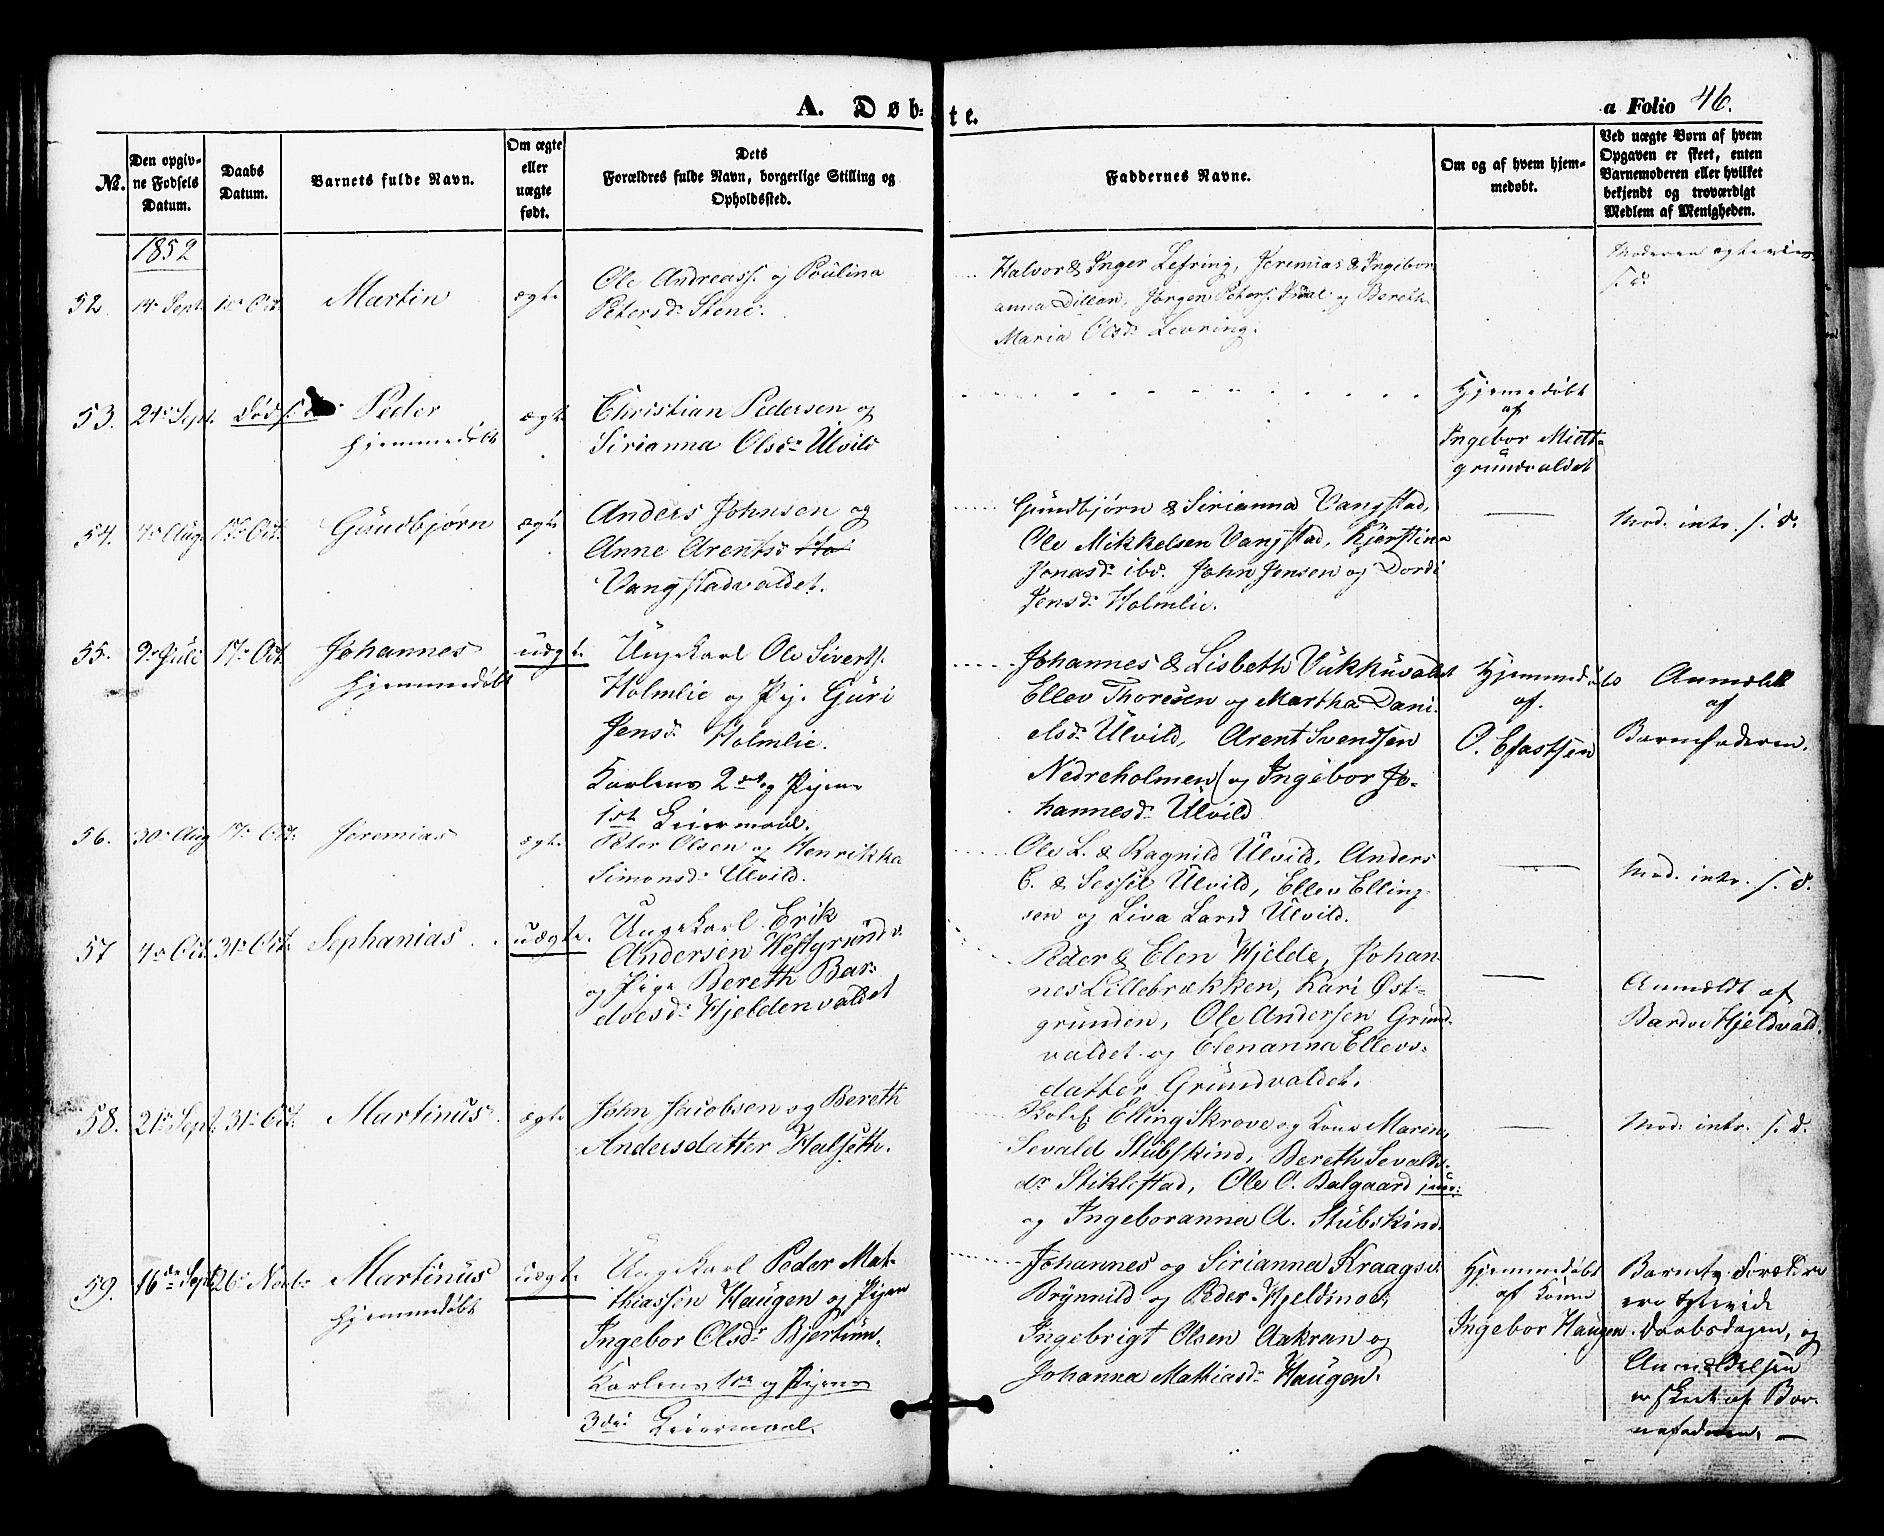 A. Døbte.
a Folio 46.
No.
Den opgivne Fødsels Datum.
Daabs Datum.
Barnets fulde Navn.
Om ægte eller uægte født.
Dets Forældres fulde Navn, borgerlige Stilling og Opholdssted.
Faddernes Navne.
Om og af hvem hjemmedøbt.
Ved uægte Børn af hvem Opgaven er skeet, enten Barnemoderen eller hvilket bekjendt og troværdigt Medlem af Menigheden.
1852
52. 14 Sept. 10 Oct. Martin ægte
Ole Andreass. og Poulina
Petersd. Stene.
Halvor & Inger Lefring, Jeremias & Ingebor
anna Dillan, Jørgen Peters. og Bereth
Maria Olsd. Levring.
Moderen
s. d.
53. 24 Sept. død Peder ægte
hjemmedøbt
Christian Pedersen og
Sirianna Olsdr Ulvild
Hjemedøbt
af
Ingebor Miett-
grundvaldet
54. 4 Aug. 17 Oct. Gundbjørn ægte
Anders Johnsen og
Anne Arentsd
Vangstadvaldet.
Gundbjørn & Sirianna Vangstad,
Ole Mikkelsen Vangstad, Kjerstina
Jonasd. ibd. John Jensen og Dordi
Jensd. Holmlie.
Mod. intr. s. d.
55. 9 Juli 17 Oct. Johannes uægt.
hjemmedøbt
Ungekarl Ole Siverts.
Holmlie og Pige Guri
Jensd. Holmlie.
Karlens 2det og Pigens
1ste Leiermaal.
Johannes & Lisbeth Vukkuvaldet
Ellev Thoresen og Martha Dani-
elsd. Ulvild, Arent Svendsen
Nedreholmen, og Ingebor Jo-
hannesd. Ulvild
Hjemmedøbt
af
O.
Anmeldt
af
Barnefaderen.
56. 30 Aug. 17 Oct. Jeremias ægte
Peter Olsen og Henrikka
Simonsd. Ulvild.
Ole L. & Ragnild Ulvild, Anders
E. & Sessel Ulvild, Ellev Elling-
sen og Liva Larsd Ulvild.
Mod. intr. s. d.
57 4 Oct. 31 Oct. Sephanias uægte.
Ungekarl Erik
Andersen Westgrundv.
og Pige Bereth Bar-
dvesd. Hjeldenvaldet
Peder & Elen Hjelde, Johan-
nes Lillebrækken, Kari Øst-
grunden, Ole Andersen Grund-
valdet og Elenanna Ellevs-
datter Grundvaldet.
Anmeldt af
Bardo Hjeldvald.
58. 21 Sept. 31 Oct. Martinus ægte
John Jacobsen og Bereth
Andersdatter Halseth.
Elling Skrove og Kone Maren,
Sevald Stubskind, Bereth Sevalds-
dr Stiklestad, Ole O. Balgaard junr:
og Ingeboranna A. Stubskind.
Mod. intr. s. d.
59. 16de Sept 26 Novbr Martinus uægte
hjemmedøbt
Ungekarl Peder Mat-
thiassen Haugen og Pigen
Ingebor Olsdr Bjertum.
Karlens 1ste og Pigens
3die Leiermaal.
Johannes og Sirianna Kraagsv.
Brynnild og Peder Hjeldmoe,
Ingebrigt Olsen Aakran og
Johanna Mathiasd. Haugen.
Hjemmedøbt
af Kone
Ingebor Haugen.
Barnets Forældre
ere
Daabsdagen, og
Anmeldelsen
er skeet af Bar-
nefaderen. —